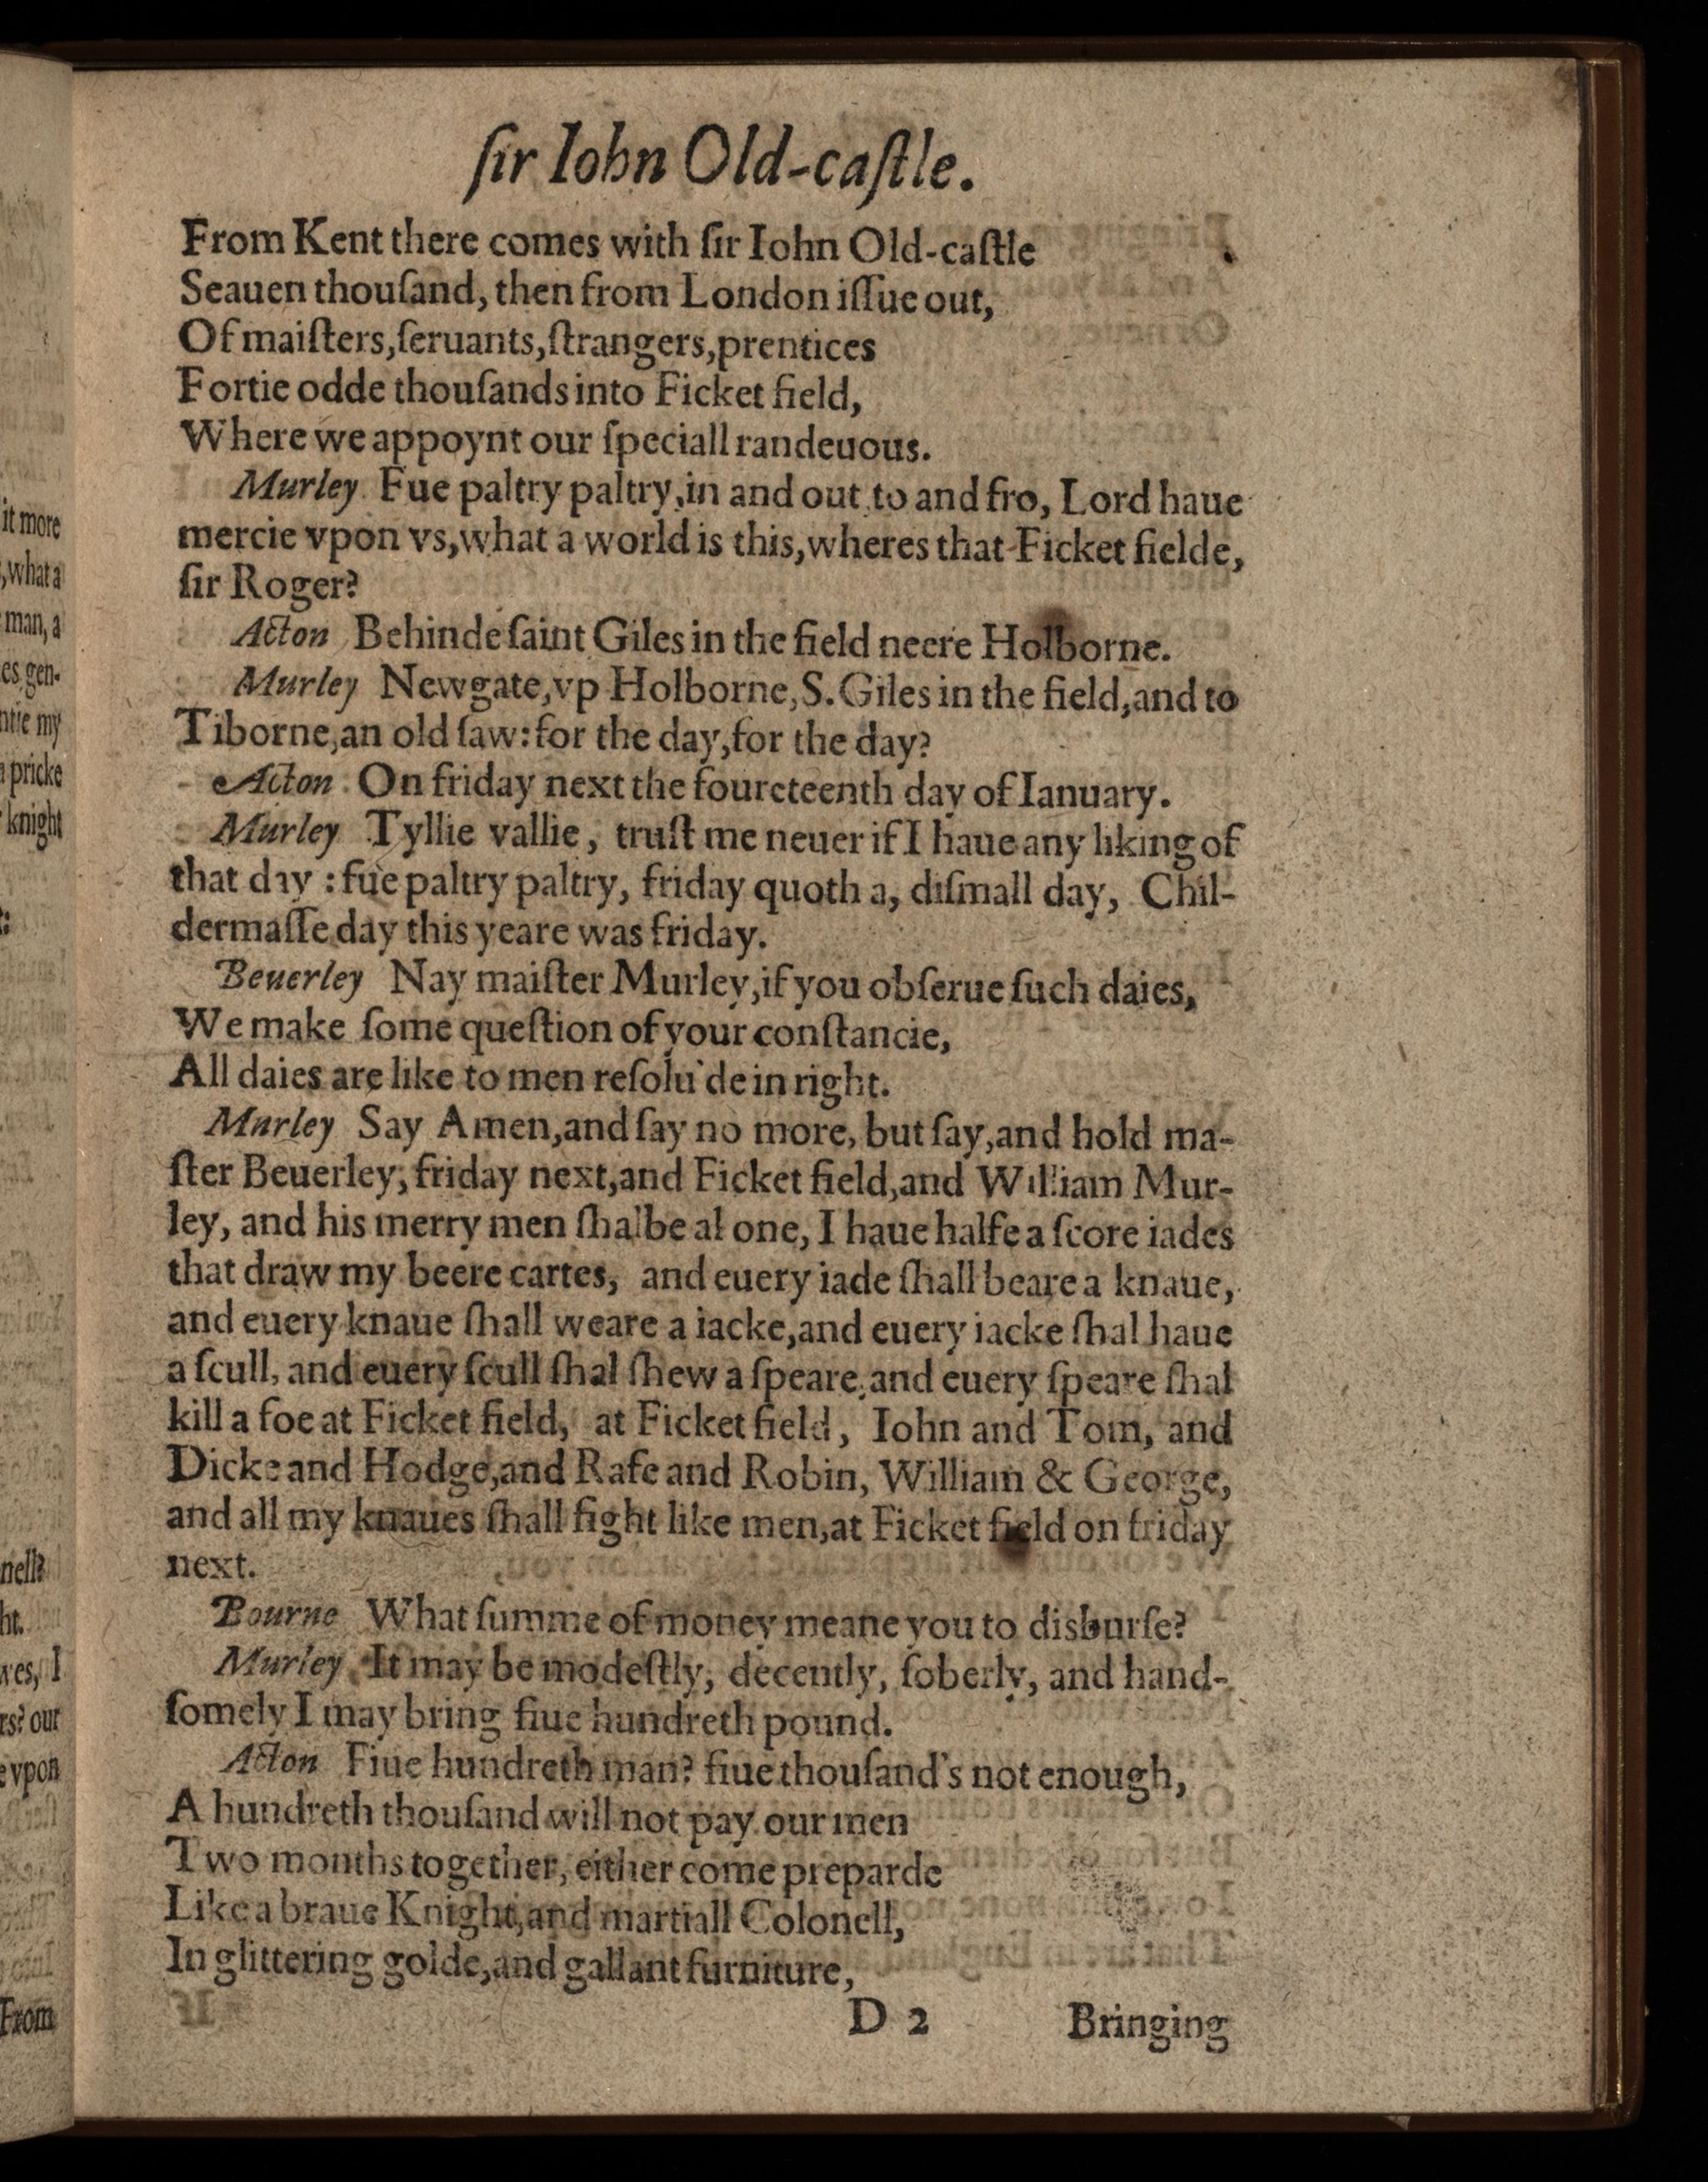 ſir Iohn Old-caſtle.
From Kent there comes with ſir Iohn Old-caſtle
Seauen thouſand, then from London iſſue out,
Of maiſters, ſeruants, ſtrangers, prentices
Fortie odde thouſands into Ficket field,
Where we appoynt our ſpeciall randeuous.
Murley Fue paltry paltry, in and out, to and fro, Lord haue
mercie vpon vs, what a world is this, wheres that Ficket fielde,
ſir Roger?
Acton Behinde ſaint Giles in the field neere Holborne.
Murley Newgate, vp Holborne, S. Giles in the field, and to
Tiborne, an old ſaw: for the day, for the day?
Acton On friday next the foureteenth day of Ianuary.
Murley Tyllie vallie, truſt me neuer if I haue any liking of
that day: fue paltry paltry, friday quoth a, diſmall day, Chil-
dermaſſe day this yeare was friday.
Beuerley Nay maiſter Murley, if you obſerue ſuch daies,
We make ſome queſtion of your conſtancie,
All daies are like to men reſolu'de in right.
Murley Say Amen, and ſay no more, but ſay, and hold ma-
ſter Beuerley, friday next, and Ficket field, and William Mur-
ley, and his merry men ſhalbe al one, I haue halfe a ſcore iades
that draw my beere cartes, and euery iade ſhall beare a knaue,
and euery knaue ſhall weare a iacke, and euery iacke ſhal haue
a ſcull, and euery ſcull ſhal ſhew a ſpeare, and euery ſpeare ſhal
kill a foe at Ficket field, at Ficket field, Iohn and Tom, and
Dicke and Hodge, and Rafe and Robin, William & George,
and all my knaues ſhall fight like men, at Ficket field on friday
next.
Bourne What ſumme of money meane you to disburſe?
Murley It may be modeſtly, decently, ſoberly, and hand-
ſomely I may bring fiue hundreth pound.
Acton Fiue hundreth man? fiue thouſand's not enough,
A hundreth thouſand will not pay our men
Two months together, either come preparde
Like a braue Knight, and martiall Colonell,
In glittering golde, and gallant furniture,
D 2 Bringing
it more
, what a
man, a
es gen-
ntie my
pricke
knight
nell?
ht.
wes, I
rs? our
e vpon
From